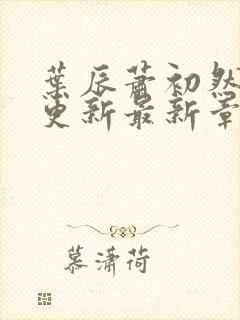 葉辰蕭初然
更新最新章
慕潇荷